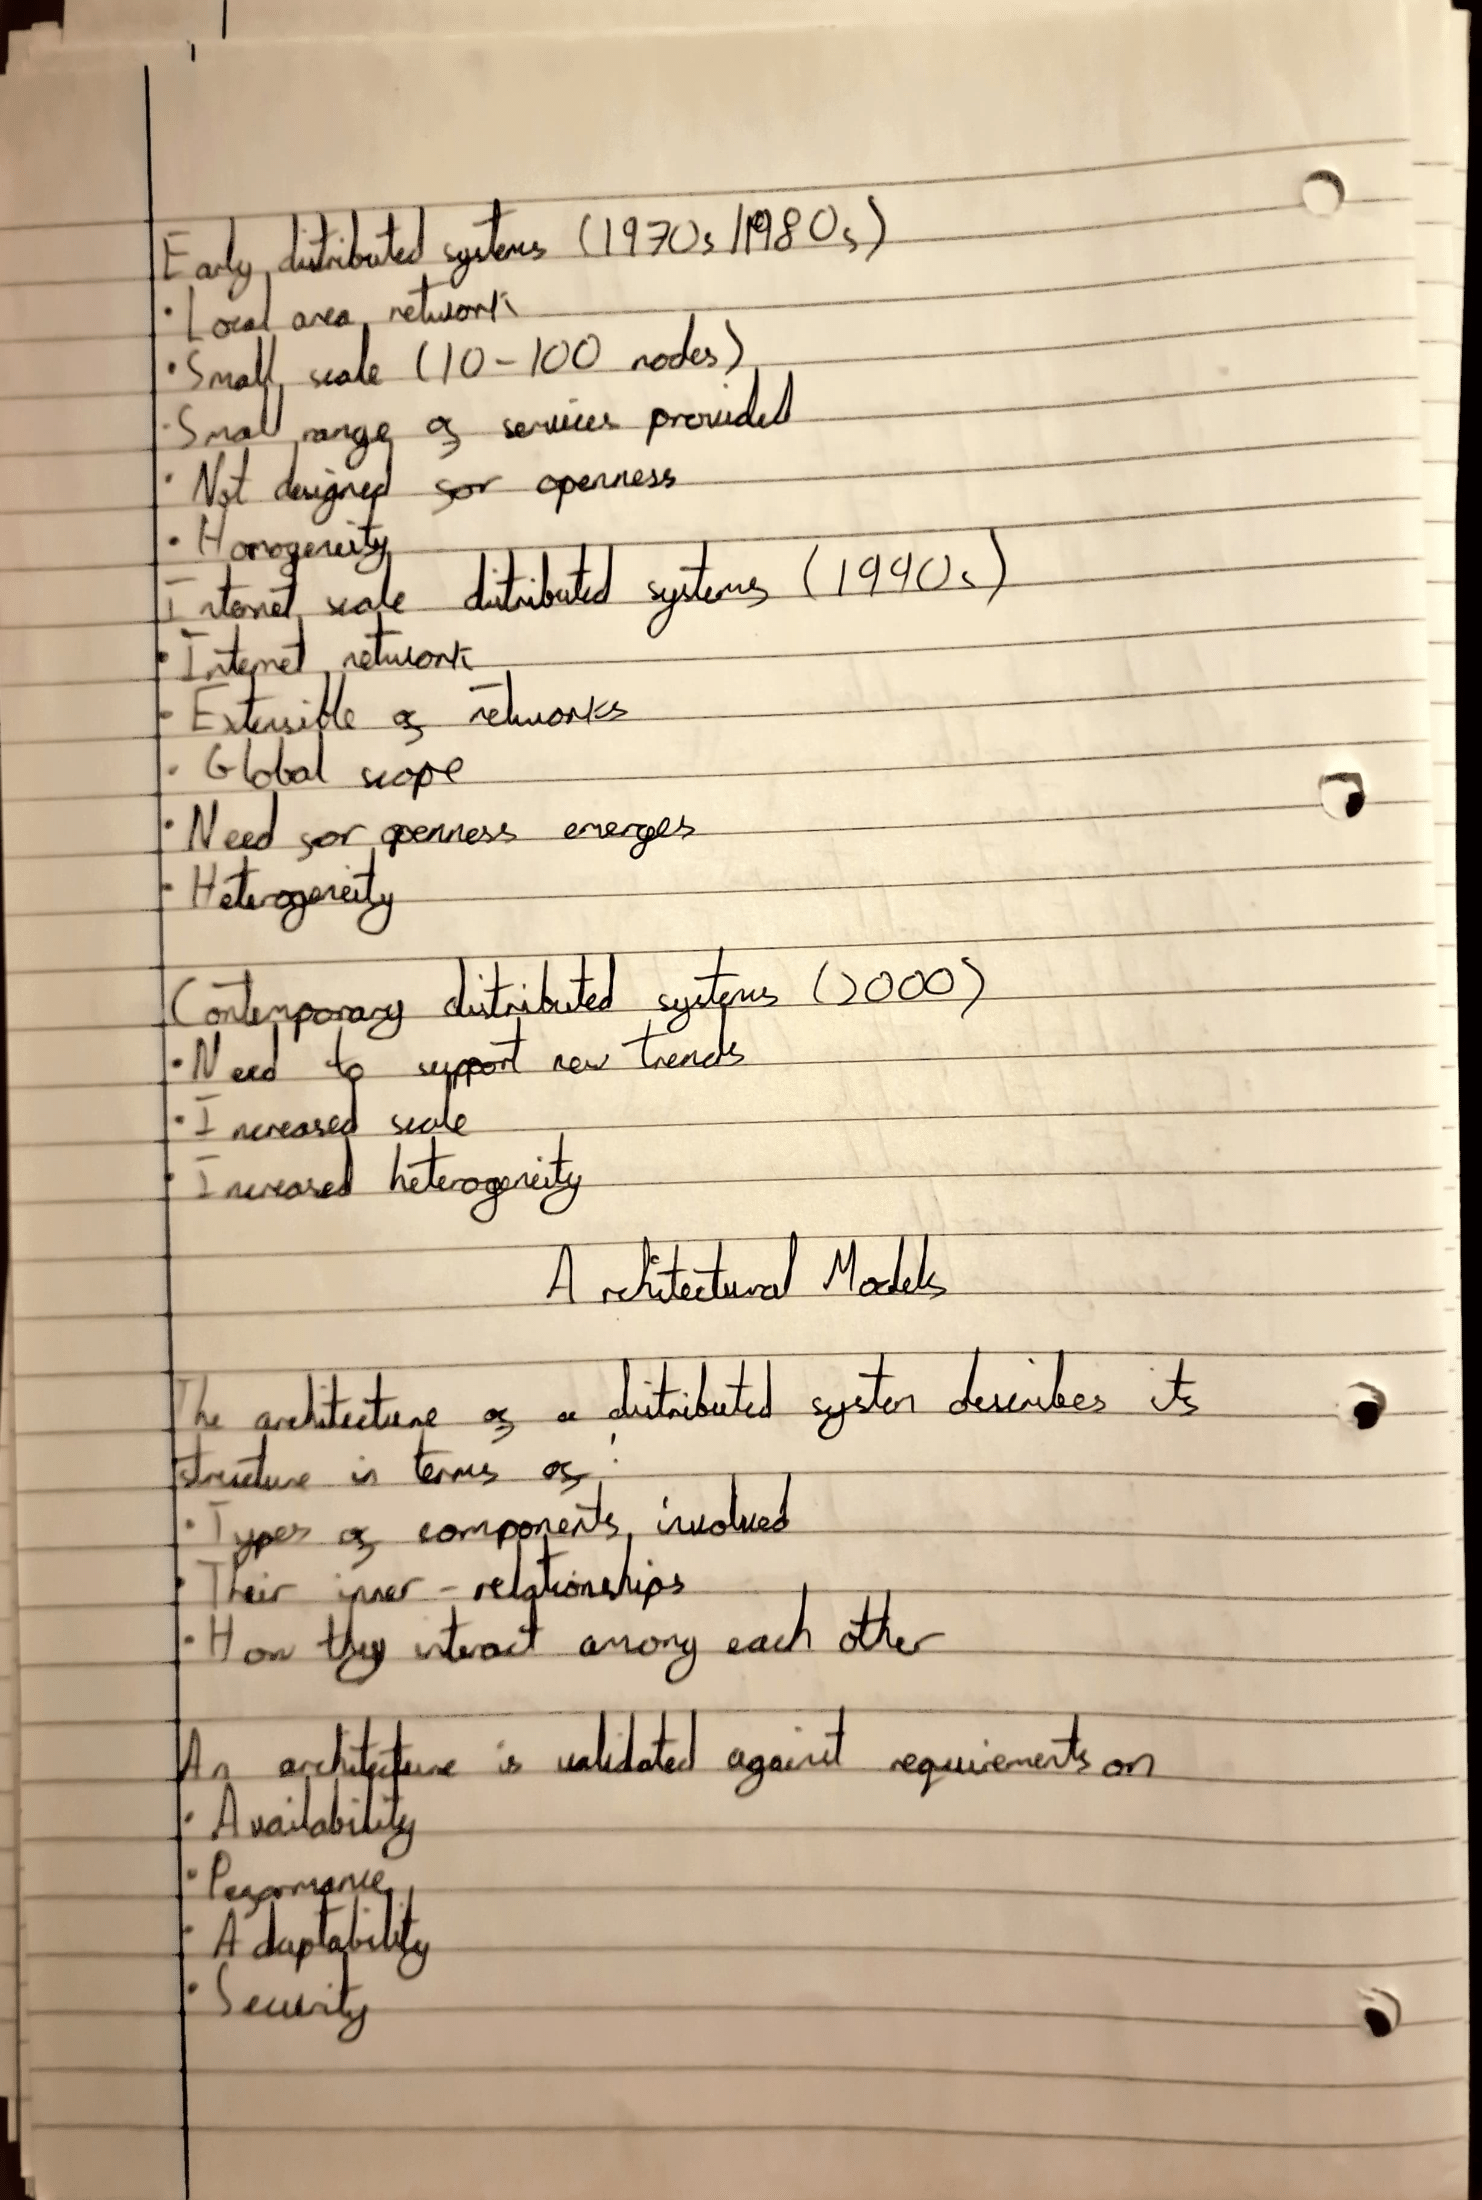 Early distributed systems (1970s/1980s)
• Local area network
• Small scale (10-100 nodes)
• Small range of services provided
• Not designed for openness
• Homogeneity
Internet scale distributed systems (1990s)
• Internet network
• Extensible of networks
• Global scope
• Need for openness emerges
• Heterogeneity
Contemporary distributed systems (2000)
• Need to support new trends
• Increased scale
• Increased heterogeneity
Architectural Models
The architecture of a distributed system describes its
structure in terms of:
• Types of components involved
• Their inner-relationships
• How they interact among each other
An architecture is validated against requirements on
• Availability
• Peformance
• Adaptability
• Security